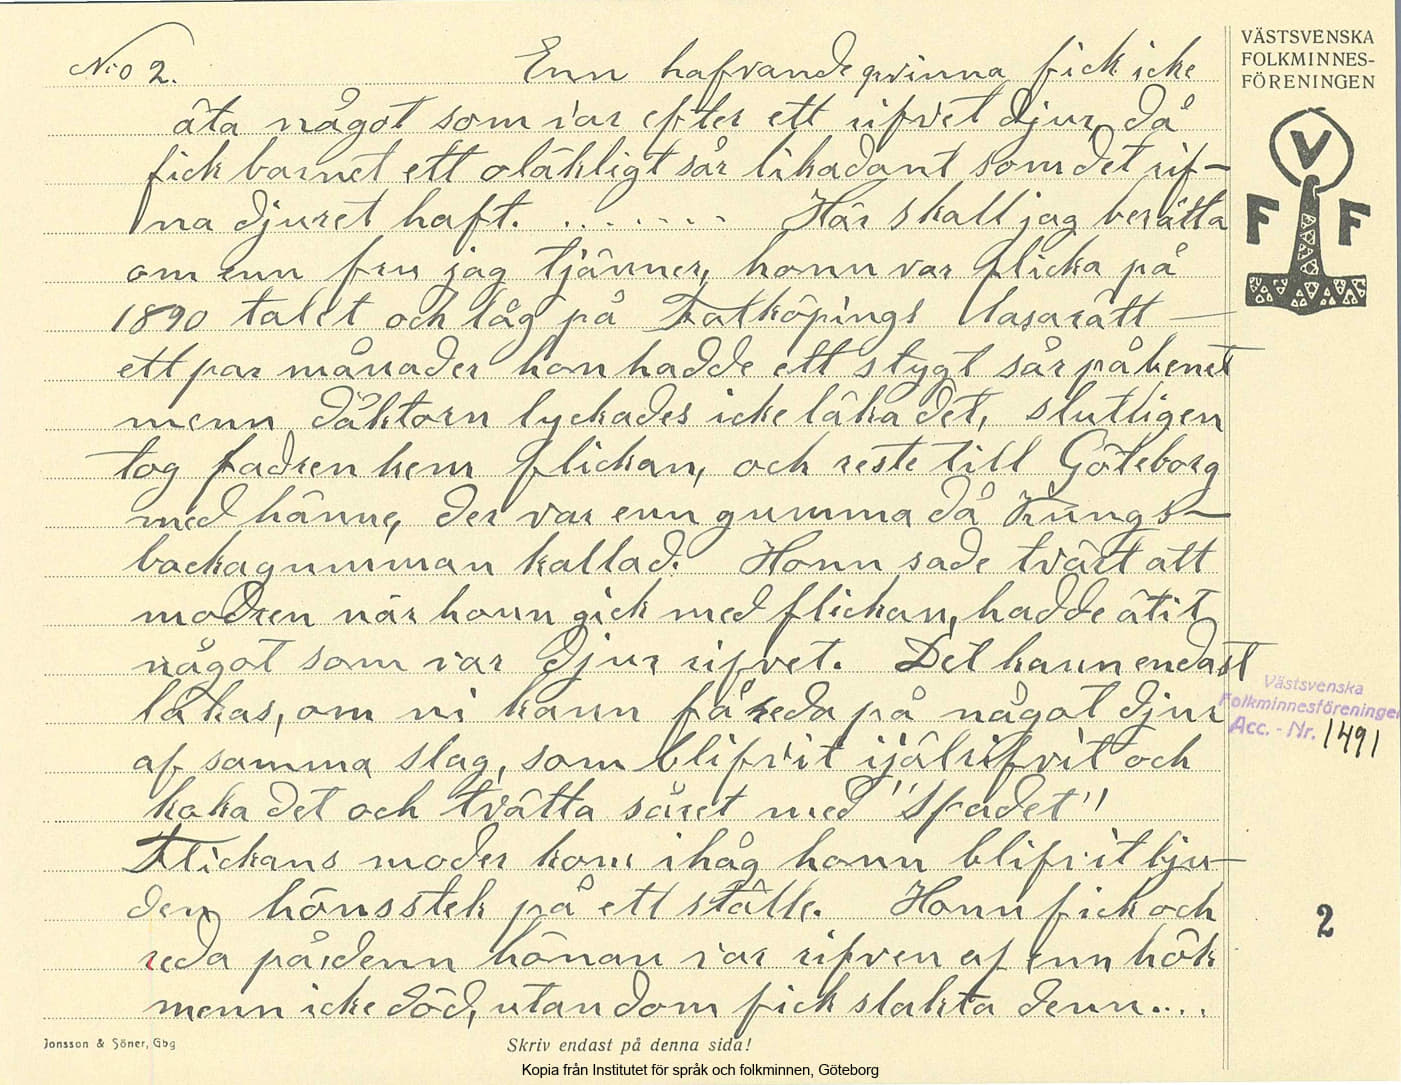 No 2. Enn hafvande qvinna fick icke
äta något som var efter ett rifvet djur, då
fick barnet ett oläkligt sår likadant som det rif-
na djuret haft. ........ Här skall jag berätta
om enn fru jag tjänner, honn var flicka på
1890 talet och låg på Falköpings lasarätt —
ett par månader hon hadde ett stygt sår på benet
menn däktorn lyckades icke läka det, slutligen
tog fadren hem flickan, och reste till Göteborg
med hänne, der var enn gumma då Kungs-
backagumman kallad. Honn sade tvärt att
modren när honn gick med flickan, hadde ätit
något som var djur rifvet. Det kann endast
läkas, om ni kann få reda på något djur
af samma slag, som blifvit ijälrifvit och
koka det och tvätta såret med "Spadet"
Flickans moder kom ihåg honn blifvit bju-
den hönsstek på ett ställe. Honn fick och
reda på denn hönan var rifven af enn hök
menn icke död, utan dom fick slakta denn....
VÄSTSVENSKA
FOLKMINNES-
FÖRENINGEN
V
F F
Västsvenska
Folkminnesföreningen
Acc. - Nr. 1491
2
Jonsson & Söner, Gbg
Skriv endast på denna sida!
Kopia från Institutet för språk och folkminnen, Göteborg